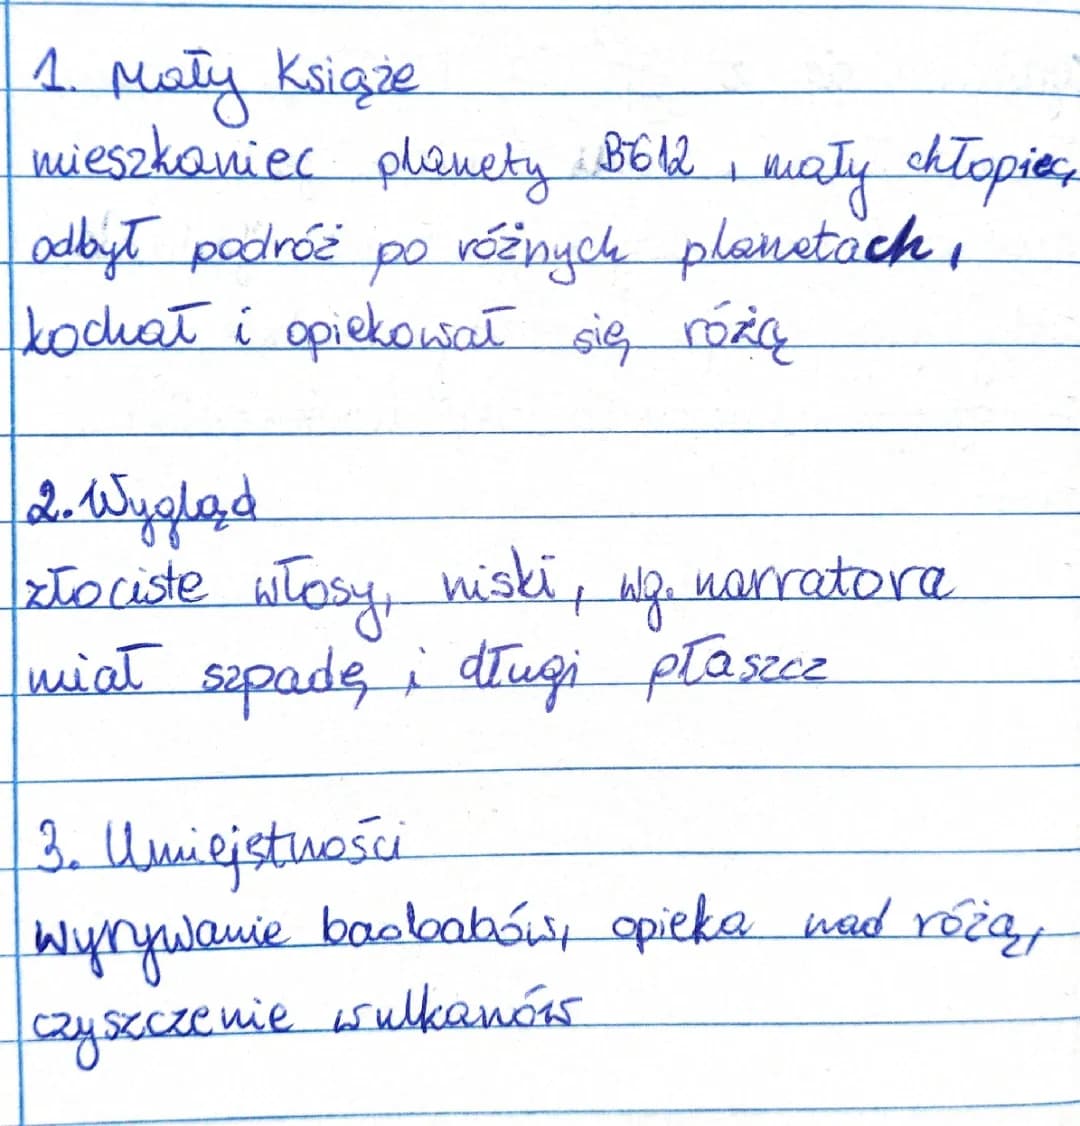 1. Mały Książe
mieszkaniec planety B612, mały chłopiec,
odbył podróż po różnych planetach,
kochał i opiekował się różą
2. Wygląd
złociste włosy, niski, wg. narratora
miał szpadę i długi płaszcz
3. Umiejętności
wyrywanie baobabów, opieka nad różą,
czyszczenie wulkanów